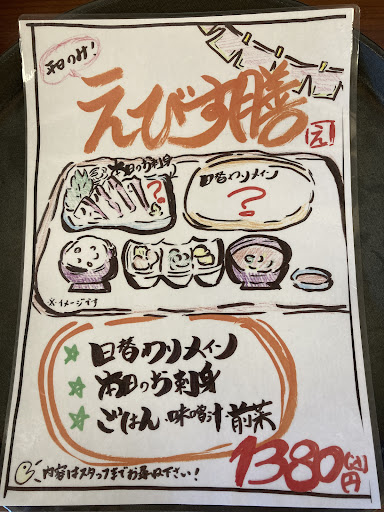 平日のみ!
えびす膳
え
本日のお刺身
?
日替わりメイン
?
※イメージです
☆ 日替わりメイン
☆ 本日のお刺身
☆ ごはん 味噌汁 前菜
内容はスタッフまでお尋ね下さい!
1380円(込)